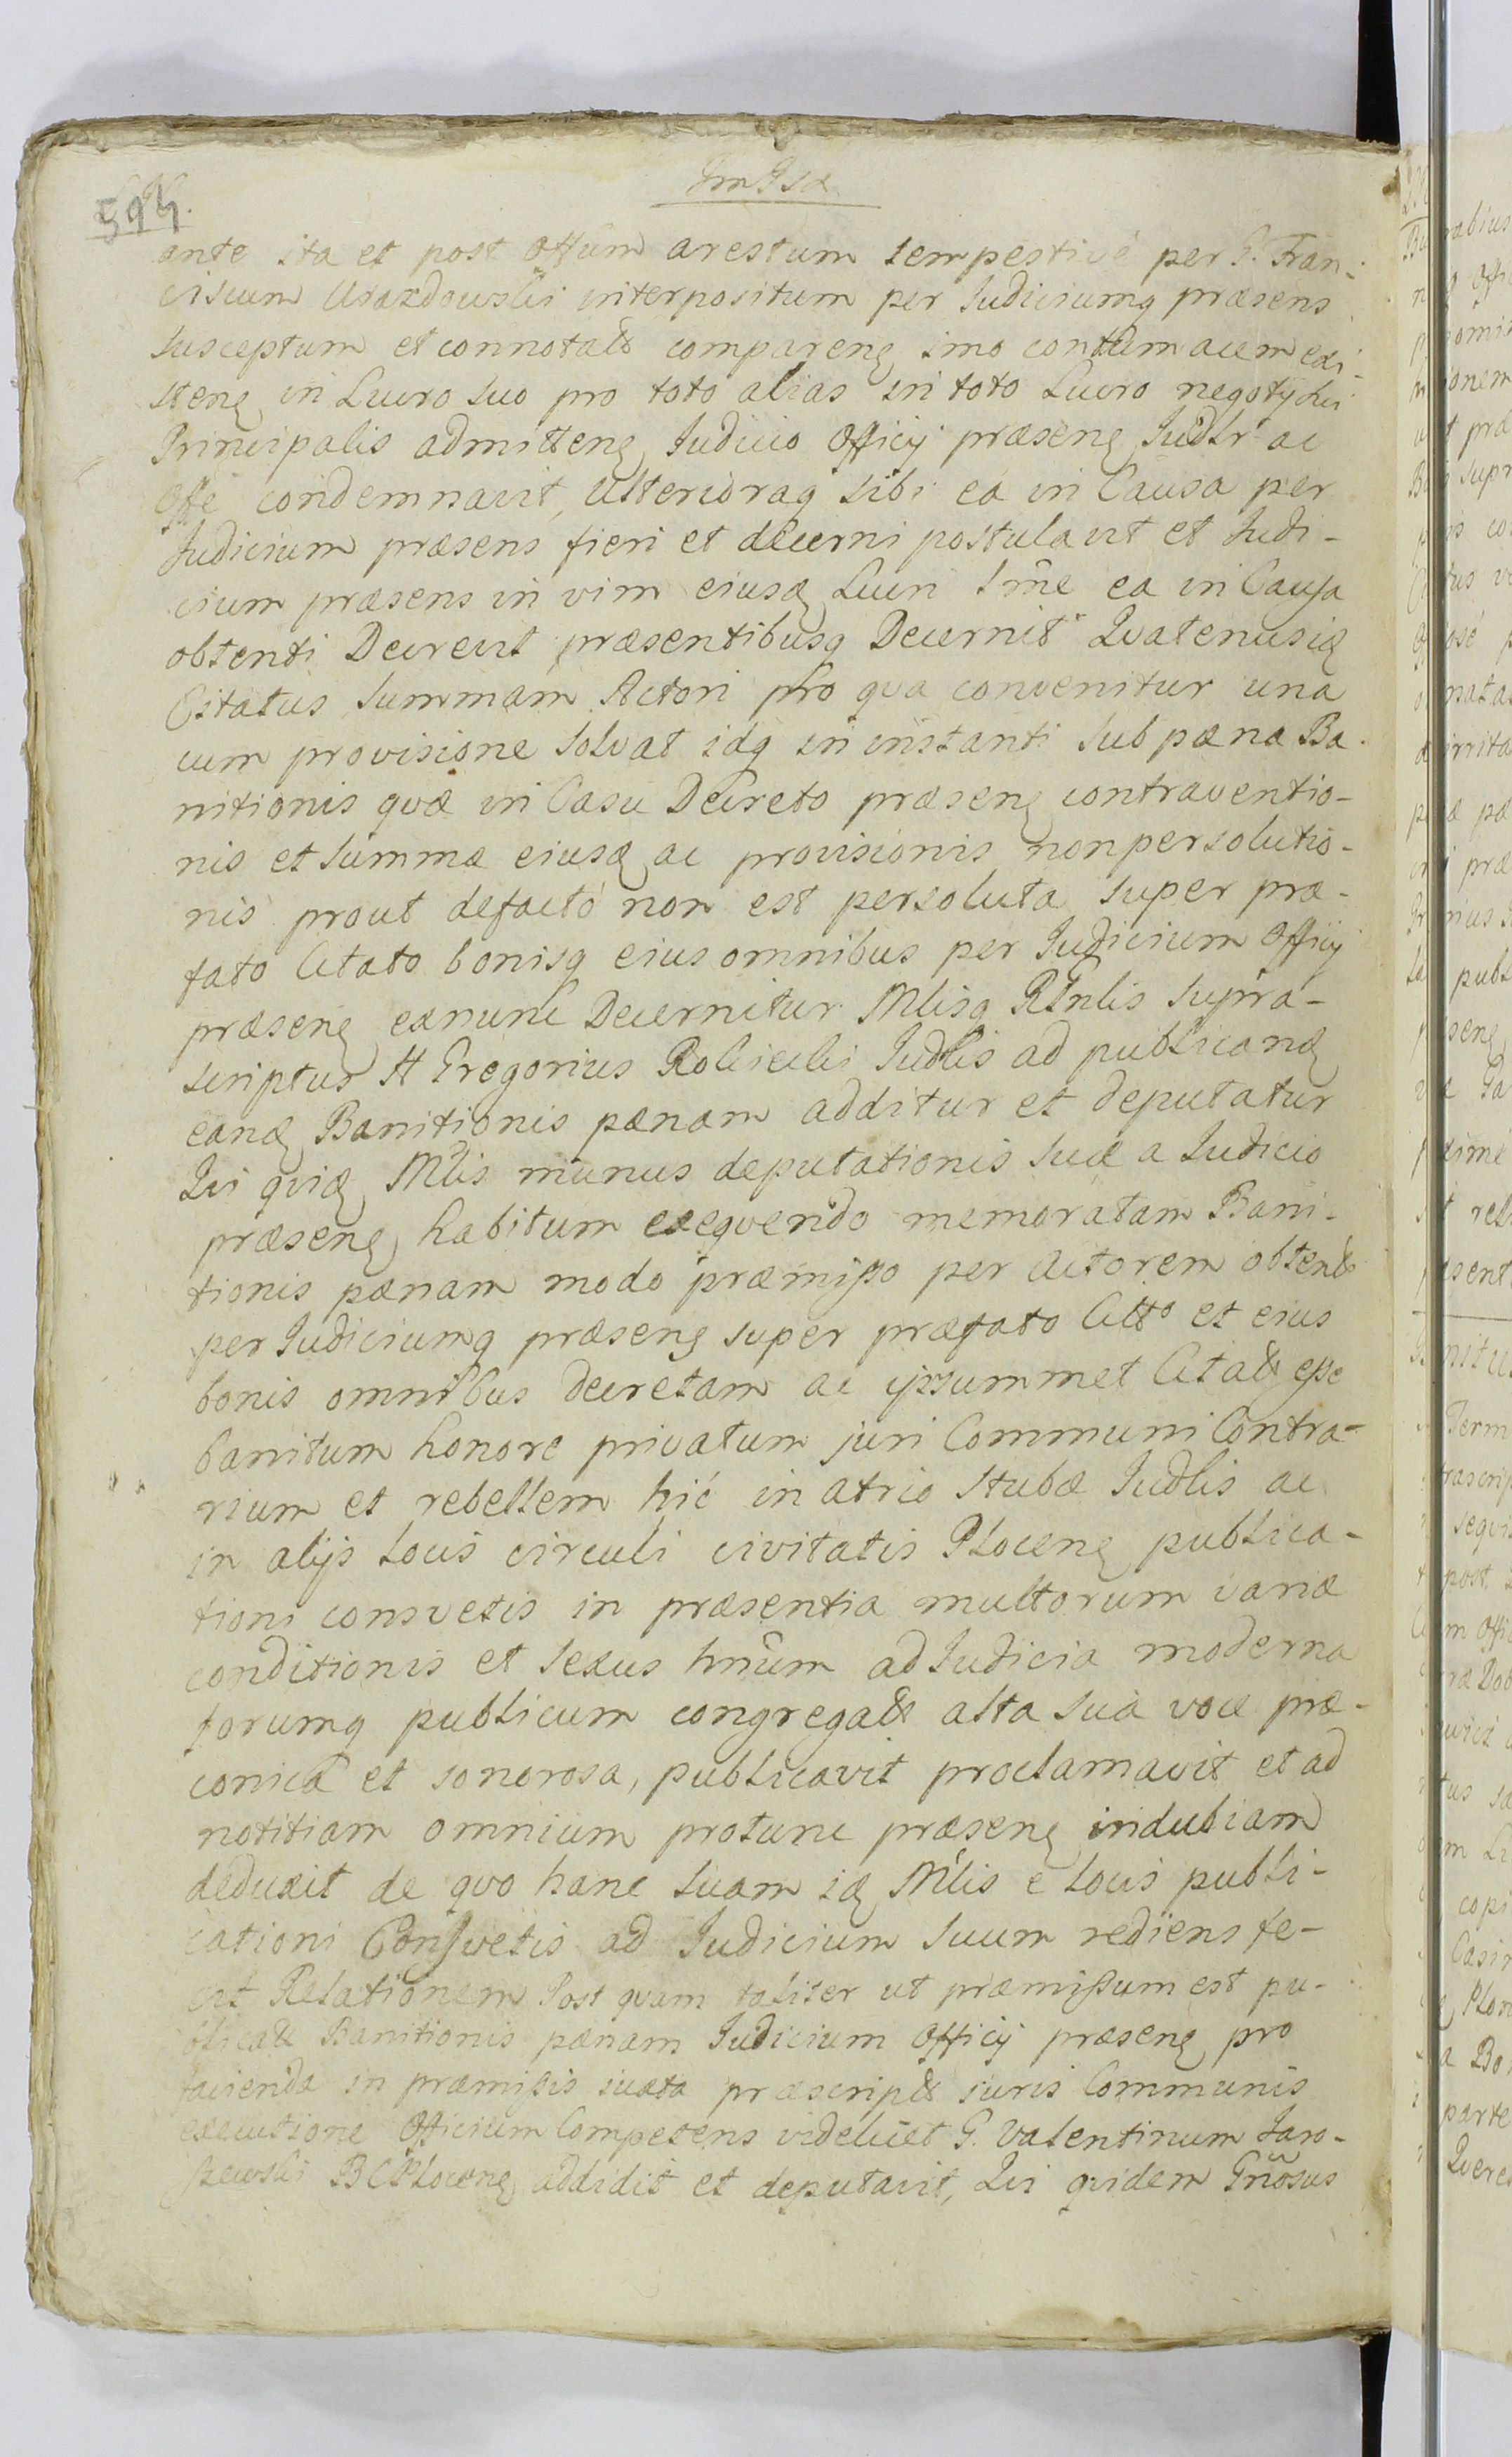 594.
ante ita et post Offum arestum tempestivé per G. Fran-
ciscum interpositum per Iudiciumq præsens
susceptum et connotatũ comparenę imo contumacem exi-
stenę in Lucro suo pro toto alias in toto Lucro negotij sui
Principalis admittenę Iudicio Officij præsenę Iudlr ac
Offe condemnavit, Ulterioraq sibi ea in Causa per
Iudicium præsens fieri et decerni postulavit et Iudi-
cium præsens in vim eiusdę Lucri Smẽ ea in Causa
obtenti Decrevit præsentibusq Decernit Quatenus idę
Citatus Summam Actori pro qua convenitur una
cum provisione solvat idq in instanti sub pæna Ba-
nitionis qvæ in Casu Decreto præsenę contraventio-
nis et Summæ eiusdę ac provisionis non persolutio-
nis prout defacto non est persoluta super præ-
fato Citato bonisq eius omnibus per Iudicium Officij
præsenę exnunc Decernitur Mlisq RGnlis supra-
scriptus H Gregorius Iudlis ad publicandę
eandę Banitionis pænam additur et deputatur
Qui qvidę Mlis munus deputationis suæ a Iudicio
præsenę habitum exeqvendo memoratam Bani-
tionis pænam modo præmisso per Actorem obtentũ
per Iudiciumq præsenę super præfato Citto et eius
bonis omnibus decretam ac ipsummet Citatũ esse
banitum honore privatum juri Communi Contra-
rium et rebellem hic in atrio Stubæ Iudlis ac
in alijs locis circuli civitatis Plocenę publica-
tioni consvetis in præsentia multorum variæ
conditionis et sexus hnũm ad Iudicia moderna
forumq publicum congregatũ alta sua voce præ-
conica et sonorosa, publicavit proclamavit et ad
notitiam omnium protunc præsenę indubiam
deduxit de qvo hanc suam idę Mlis e locis publi-
cationi Consvetis ad Iudicium suum rediens fe-
cit Relationem Post quam taliter ut præmissum est pu-
blicatũ Banitionis pænam Iudicium Officij præsenę pro
facienda in præmissis iuxta præscriptũ iuris Communis
executione Officium Competens videlicet G. Valentinum Jaro-
szewski BCPlocenę addidit et deputavit, Qui qvidem Gnõsus